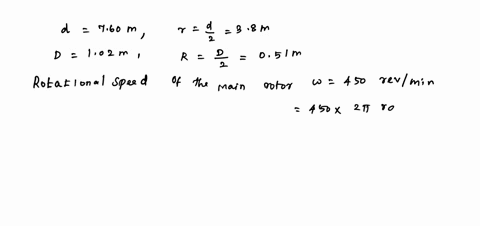 d = 7.60 m, r = d/2 = 3.8 m
D = 1.02 m, R = D/2 = 0.51 m
Rotational speed of the main rotor ω = 450 rev/min
= 450 × 2π ro